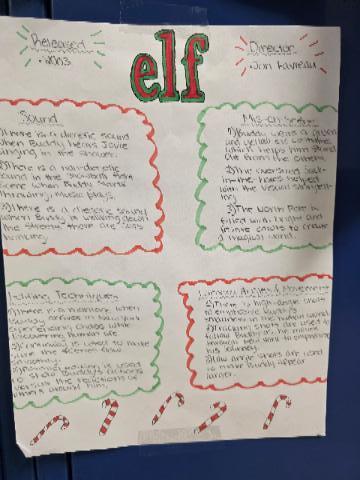 Released
• 2003
elf
Director
• Jon Favreau
Sound
1) There is a diegetic sound
when Buddy hears Jovie
singing in the shower.
2) There is a non-diegetic
sound in the
scene when Buddy starts
music plays.
3) There is a diegetic sound
when Buddy is walking down
the streets, there are cars
honking.
Mis-en-scene
1) Buddy wears a green
and yellow elf costume
which helps him stand
out from the others.
2) The oversized
helped
with the visual
3) The North Pole is
filled with bright and
festive colors to create
a magical world.
Editing Techniques
1) There is a moment when
Buddy arrives in
experiencing chaos while
discovering human life.
2) is used to make
sure the scenes flow
3) is used
to show Buddy's actions
versus the reactions of
others around him.
Camera Angles & Movement
1) There is high-angle shots
to emphasize Buddy's
smallness in the human world.
2) Tracking shots are used to
follow Buddy as he moves
through New York to emphasize
his journey.
3) Low angle shots are used
to make Buddy appear
larger.